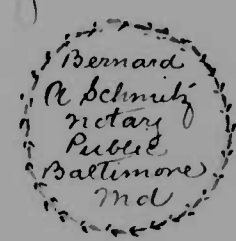 Bernard
A Schmitz
notary
Public
Baltimore
Md